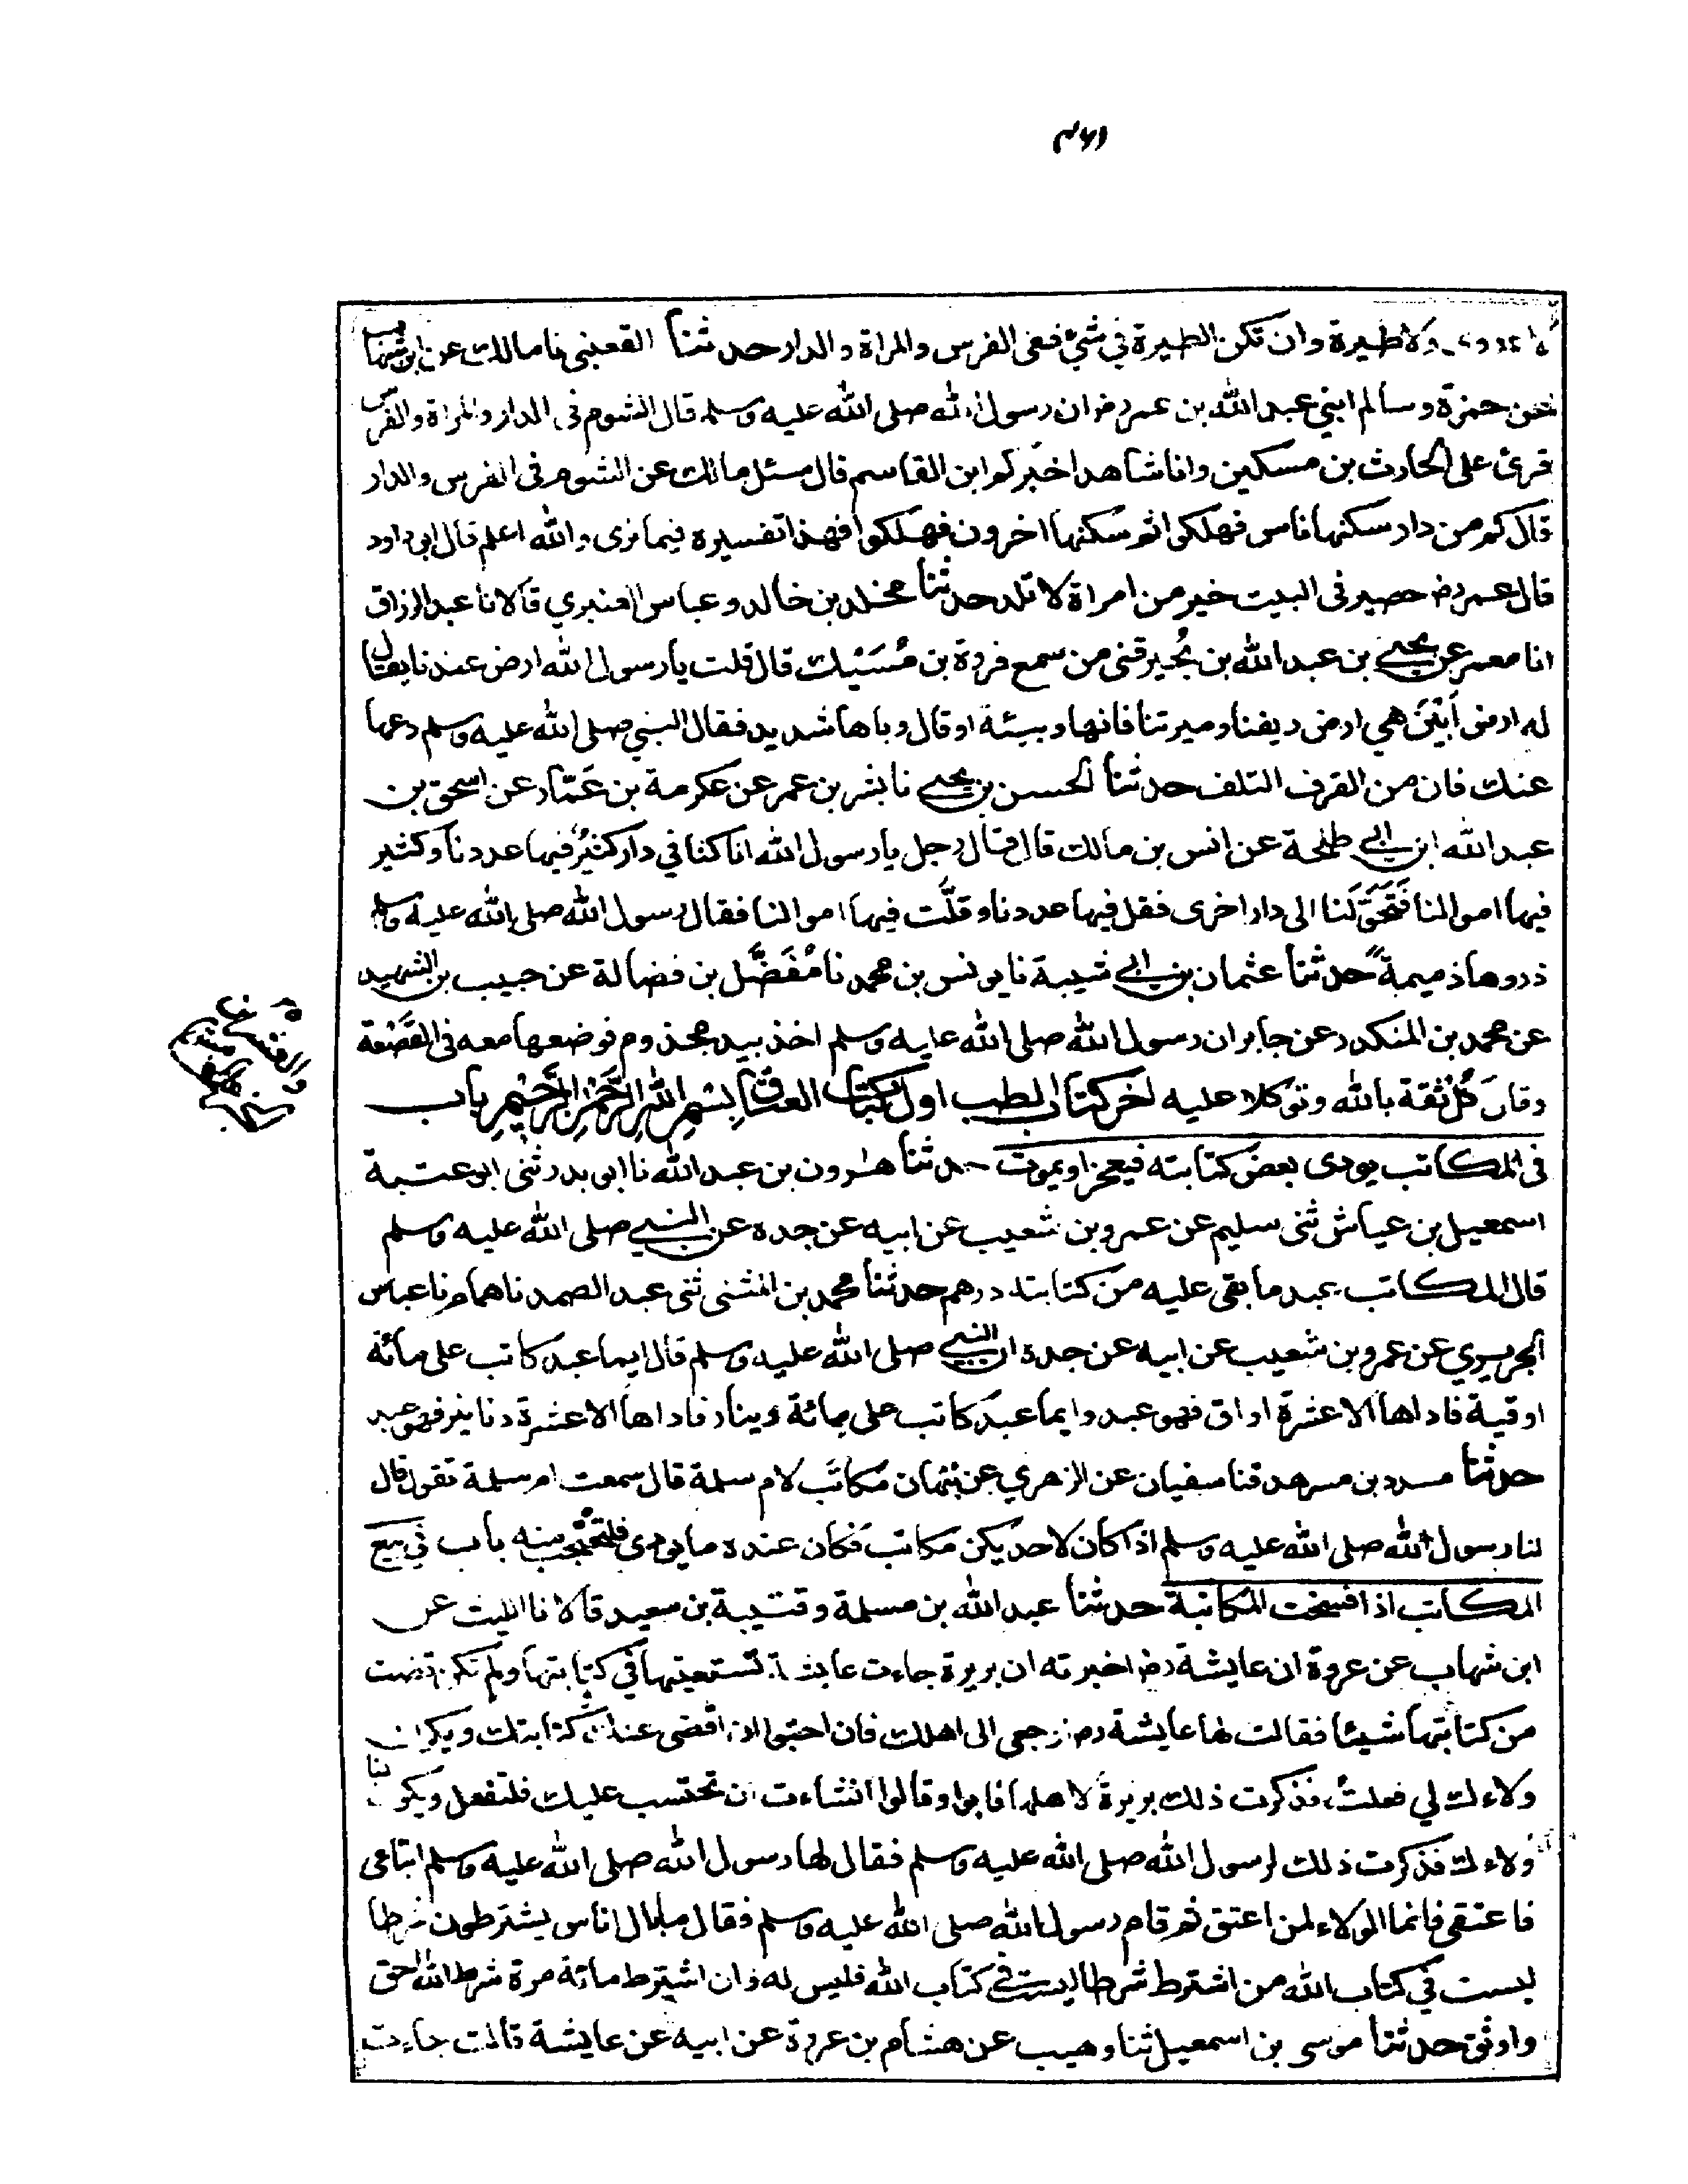 ولا طيرة وان تكن الطيرة في شئ ففى الفرس والمراة والدار حدثنا القعنبي نا مالك عن ابن شهاب
عن حمزة وسالم ابني عبد الله بن عمر رض ان رسول الله صلى الله عليه وسلم قال الشوم فى الدار والمراة والفرس
قرئ على الحارث بن مسكين وانا شاهد اخبركم ابن القاسم قال سئل مالك عن الشوم فى الفرس والدار
قال كم من دار سكنها ناس فهلكوا ثم سكنها اخرون فهلكوا فهذا تفسيره فيما نرى والله اعلم قال ابى داود
قال عمر رض حصير فى البيت خير من امراة لا تلد حدثنا مخلد بن خالد وعباس العنبري قالا نا عبد الرزاق
انا معمر عن يحيى بن عبد الله بن بُحير قنى من سمع فروة بن مُسَيْك قال قلت يا رسول الله ارض عندنا يقال
له ارض أَبْيَنَ هي ارض ريفنا وميرتنا فانها وبيئة او قال وباها شديد فقال النبي صلى الله عليه وسلم دعها
عنك فان من القرف التلف حدثنا الحسن بن يحيى نا بشر بن عمر عن عكرمة بن عَمّار عن اسحق بن
عبد الله ابن ابي طلحة عن انس بن مالك قال قال رجل يا رسول الله انا كنا في دار كثيرٌ فيها عددنا وكثير
فيها اموالنا فَتَحَوَّلَنا الى دار اخرى فقل فيها عددنا وقلّت فيها اموالنا فقال رسول الله صلى الله عليه وسلم
ذروها ذميمةً حدثنا عثمان بن ابي شيبة نا يونس بن محمد نا مُفَضَّل بن فضالة عن حبيب بن الشهيد
عن محمد بن المنكدر عن جابر ان رسول الله صلى الله عليه وسلم اخذ بيد مجذوم فوضعها معه فى القَصْعة
وقال كُل ثقة بالله وتوكلا عليه اخر كتاب الطب اول كتاب العتاق بسم الله الرحمن الرحيم باب
فى المكاتب يودى بعض كتابته فيعجز او يموت حدثنا هٰرون بن عبد الله نا ابى بدر ثنى ابو عتبة
اسمعيل بن عياش ثنى سليم عن عمرو بن شعيب عن ابيه عن جده عن النبي صلى الله عليه وسلم
قال المكاتب عبد ما بقى عليه من كتابته درهم حدثنا محمد بن المثنى ثنى عبد الصمد نا همام نا عباس
الجريري عن عمرو بن شعيب عن ابيه عن جده ان النبي صلى الله عليه وسلم قال ايما عبد كاتب على مائة
اوقية فاداها الا عشرة اواق فهو عبد وايما عبد كاتب على مائة دينار فاداها الا عشرة دنانير فهو عبد
حدثنا مسدد بن مسرهد قنا سفيان عن الزهري عن نبهان مكاتَب لام سلمة قال سمعت ام سلمة تقول قال
لنا رسول الله صلى الله عليه وسلم اذا كان لاحد يكن مكاتب فكان عنده ما يودى فلتحتجب منه باب في بيع
المكاتب اذا فسخت المكاتبة حدثنا عبد الله بن مسلمة وقتيبة بن سعيد قالا نا الليث عن
ابن شهاب عن عروة ان عايشة رض اخبرته ان بريرة جاءت عايشة تستعينها في كتابتها ولم تكن قضت
من كتابتها شيئا فقالت لها عايشة رض ارجعي الى اهلك فان احبوا ان اقضى عنك كتابتك ويكون
ولاءك لي فعلتُ فذكرت ذلك بريرةُ لاهلها فابوا وقالوا ان شاءت ان تحتسب عليك فلتفعل ويكون لنا
ولاءك فذكرت ذلك لرسول الله صلى الله عليه وسلم فقال لها رسول الله صلى الله عليه وسلم ابتاعى
فاعتقى فانما الولاء لمن اعتق ثم قام رسول الله صلى الله عليه وسلم فقال ما بال اناس يشترطون شرطا
ليست في كتاب الله من اشترط شرطا ليست في كتاب الله فليس له وان اشترط مائة مرة شرط الله احق
واوثق حدثنا موسى بن اسمعيل ثنا وهيب عن هشام بن عروة عن ابيه عن عايشة قالت جاءت